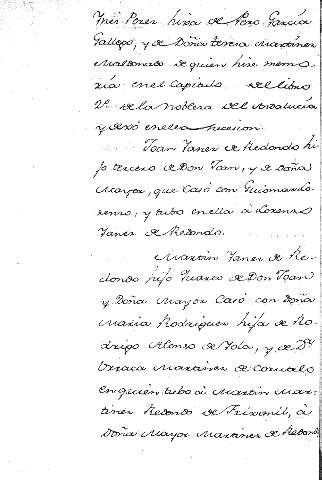 Ynés Perez hixa de Pero Garcia
Gallego, y de Doña teresa Martinez
Maldonado de quien hize memo-
ria en el Capitulo del libro
2º de la Nobleza del Andalucia
y dexò en ella sucesion.
Joan Yanez de Redondo hi-
jo tercero de Don Joan, y de doña
Mayor, que Casò con Guiomar Lo-
renzo, y tubo en ella à Lorenzo
Yanez de Redondo.
Martin Yanez de Re-
dondo hijo de Don Joan
y Doña Mayor Casò con Doña
Maria Rodriguez hija de Ro-
drigo Alonso de y de Dª
Urraca Martinez de
en quien tubo à Martin Mar-
tinez Redondo de à
Doña Mayor Martinez de Redondo